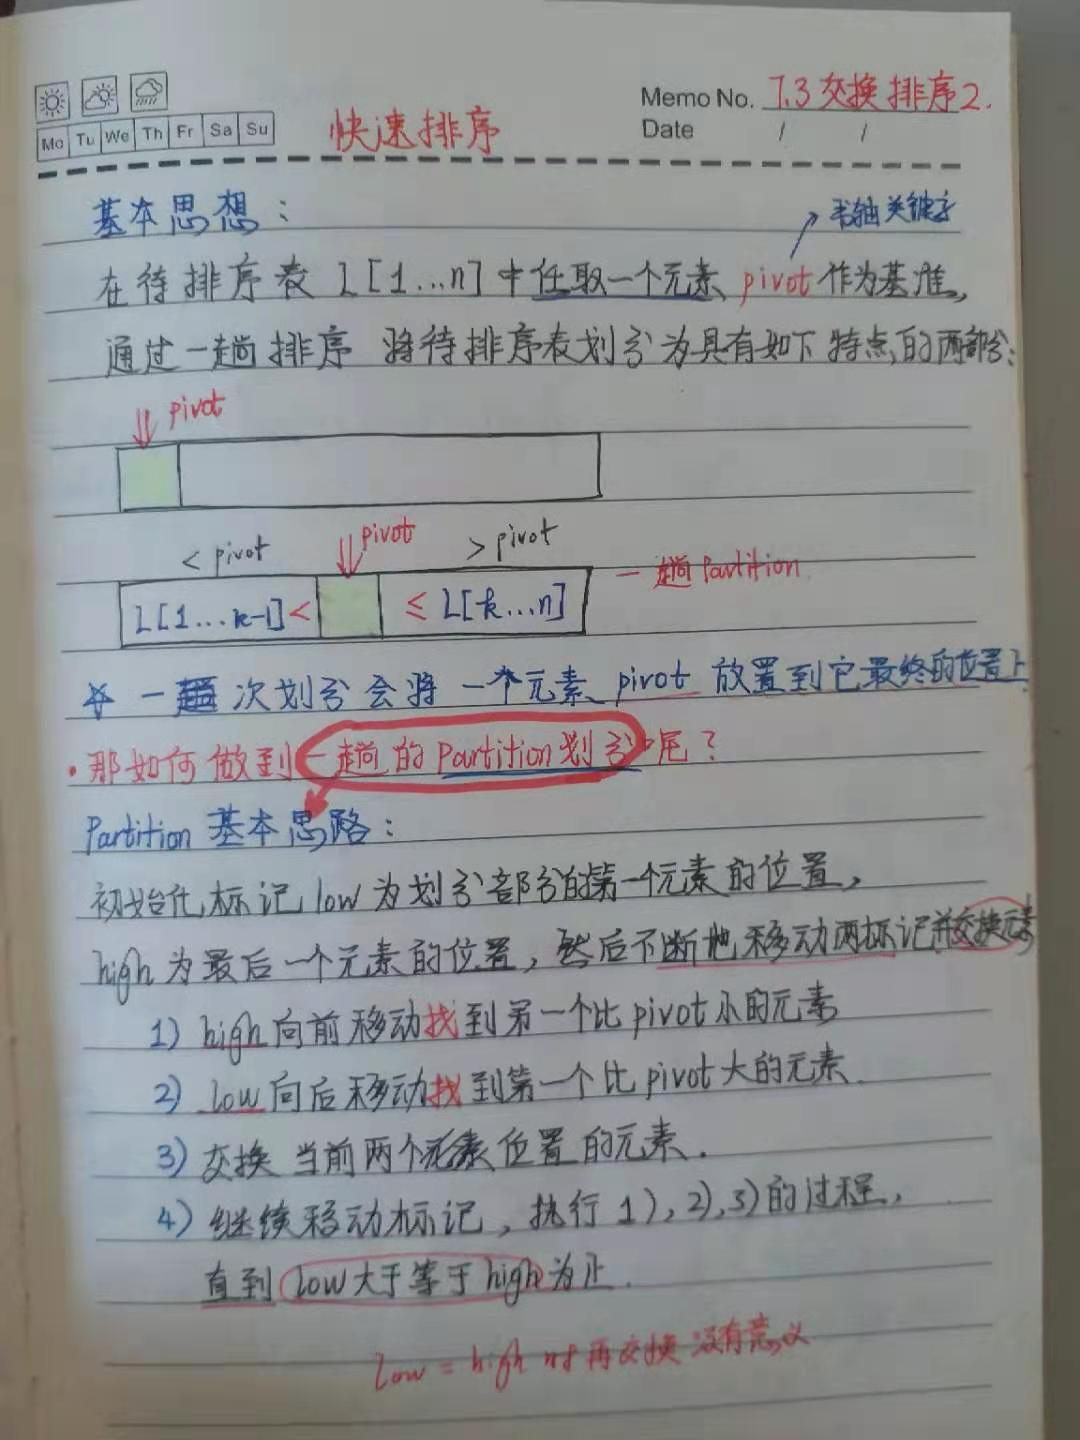 Memo No. 7.3 交换排序2.
Mo Tu We Th Fr Sa Su
Date / /
快速排序
基本思想：
枢轴关键字
在待排序表 L[1...n] 中任取一个元素 pivot 作为基准,
通过一趟排序 将待排序表划分为具有如下特点的两部分:
pivot
pivot
< pivot
> pivot
L[1...k-1] <
≤ L[k...n]
一趟 Partition
☆ 一次划分会将一个元素 pivot 放置到它最终的位置上
·那如何做到一趟的Partition划分呢?
Partition 基本思路：
初始化标记 low 为划分部分的第一个元素的位置,
high 为最后一个元素的位置, 然后不断地移动两标记并交换元素
1) high 向前移动找到第一个比 pivot 小的元素
2) low 向后移动找到第一个比 pivot 大的元素
3) 交换当前两个位置的元素.
4) 继续移动标记, 执行 1), 2), 3) 的过程,
直到 low 大于等于 high 为止.
low = high 时再交换没有意义